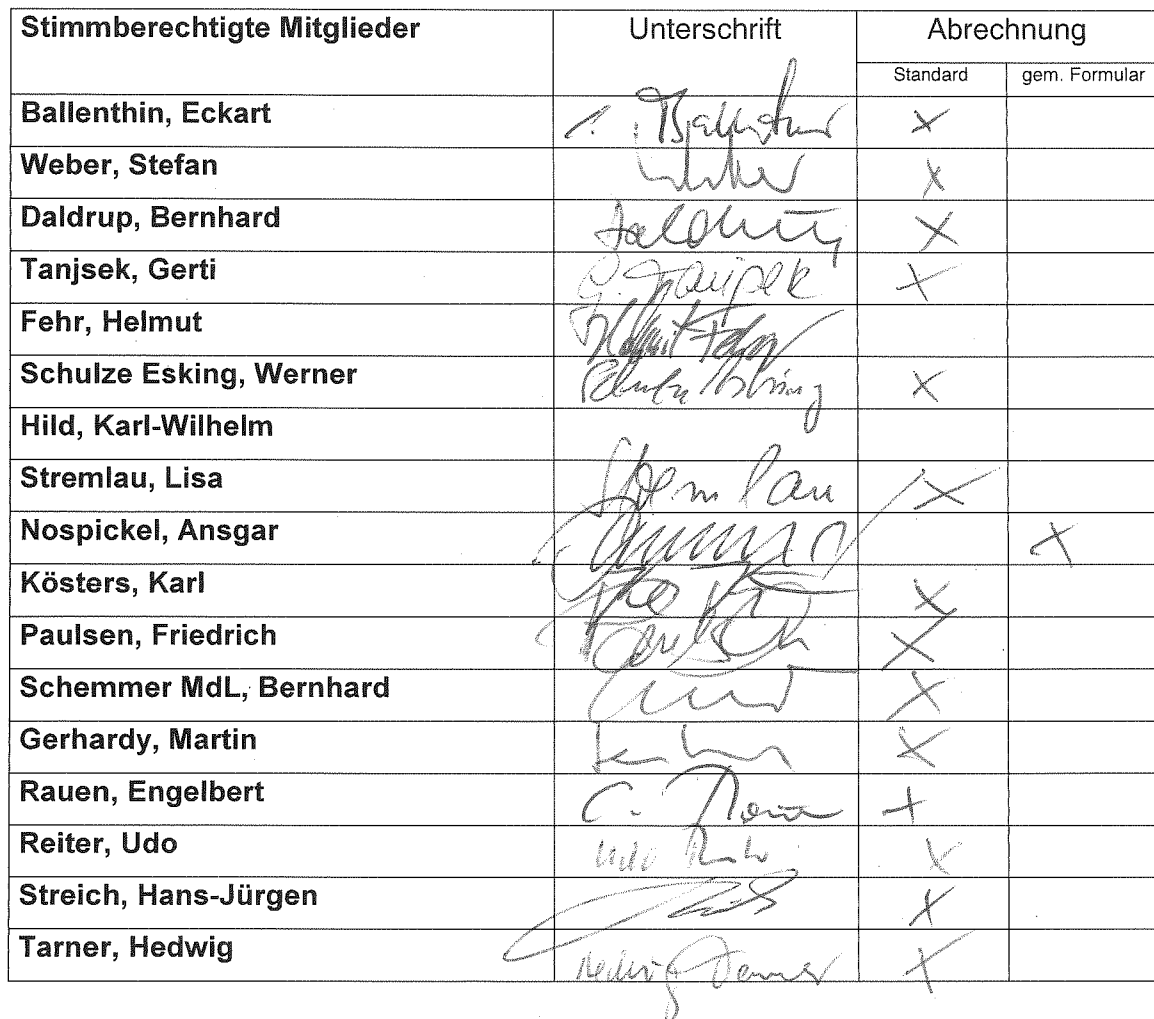 Stimmberechtigte Mitglieder Unterschrift Abrechnung
Standard gem. Formular
Ballenthin, Eckart X
Weber, Stefan X
Daldrup, Bernhard Daldrup X
Tanjsek, Gerti G. Tanjsek X
Fehr, Helmut Helmut Fehr
Schulze Esking, Werner Schulze Esking X
Hild, Karl-Wilhelm
Stremlau, Lisa Stremlau X
Nospickel, Ansgar X
Kösters, Karl X
Paulsen, Friedrich X
Schemmer MdL, Bernhard X
Gerhardy, Martin X
Rauen, Engelbert X
Reiter, Udo Udo X
Streich, Hans-Jürgen X
Tarner, Hedwig Hedwig Tarner X